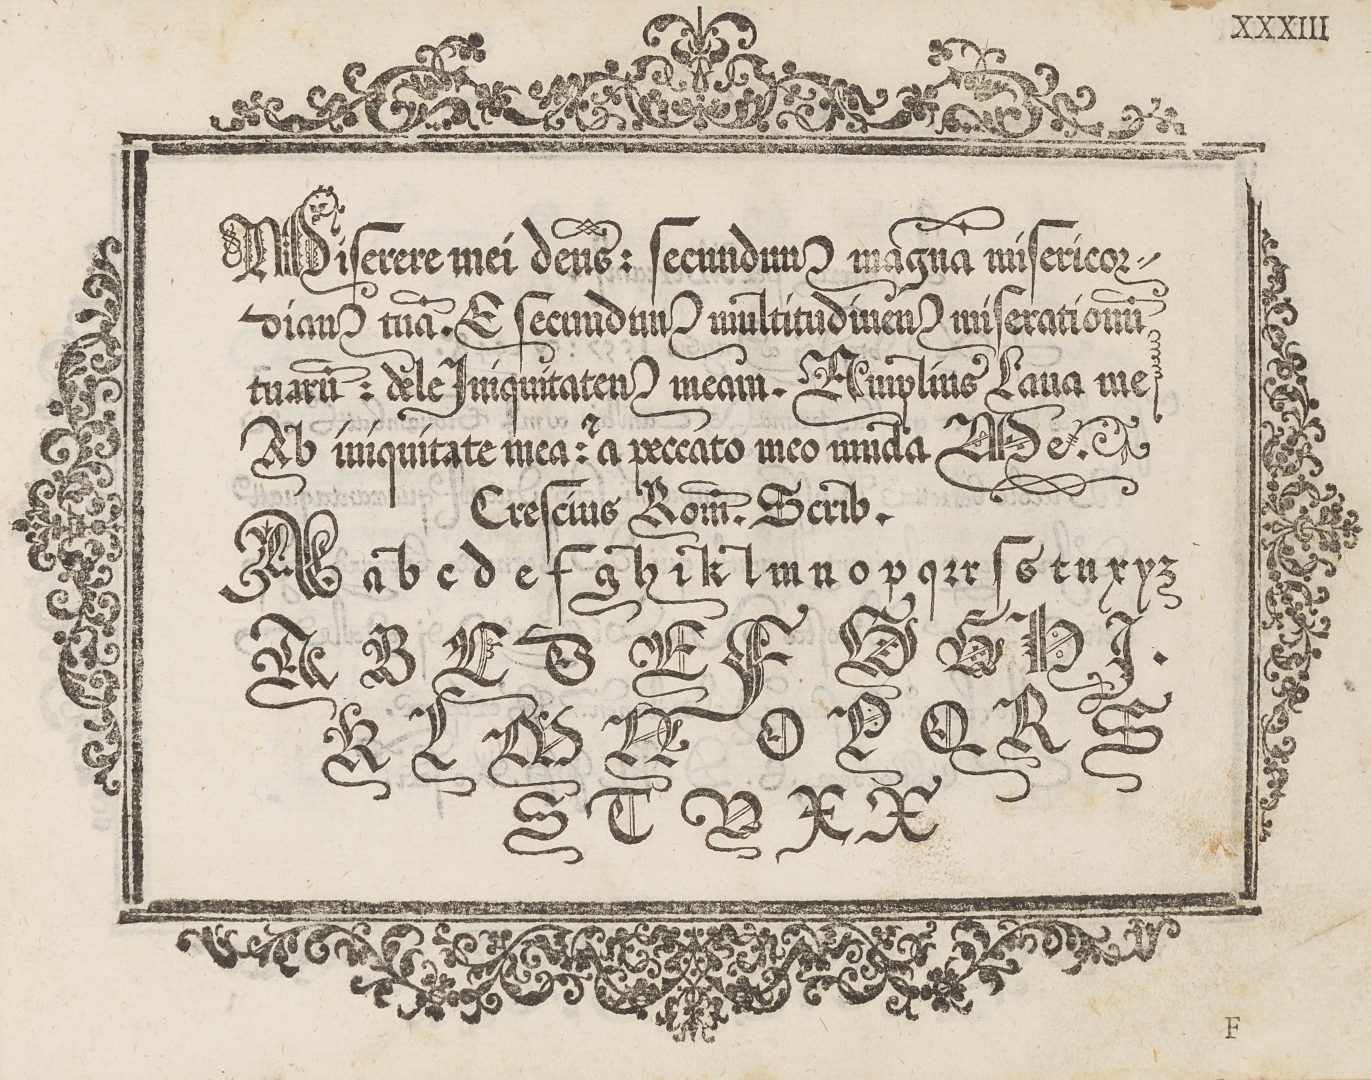 XXXIII
Miserere mei deus: secundum magnã misericor-
diam tuã. E secundum multitudinem miserationũ
tuarũ: dele Iniquitatem meam. Amplius Laua me
Ab iniquitate mea: & a peccato meo munda Me.
Crescius Rom̃. Scrib.
A a b c d e f g h i k l m n o p q r r s s t u x y z
A B C D E F G G H I.
K L M N O P Q R S
S T V X X
F